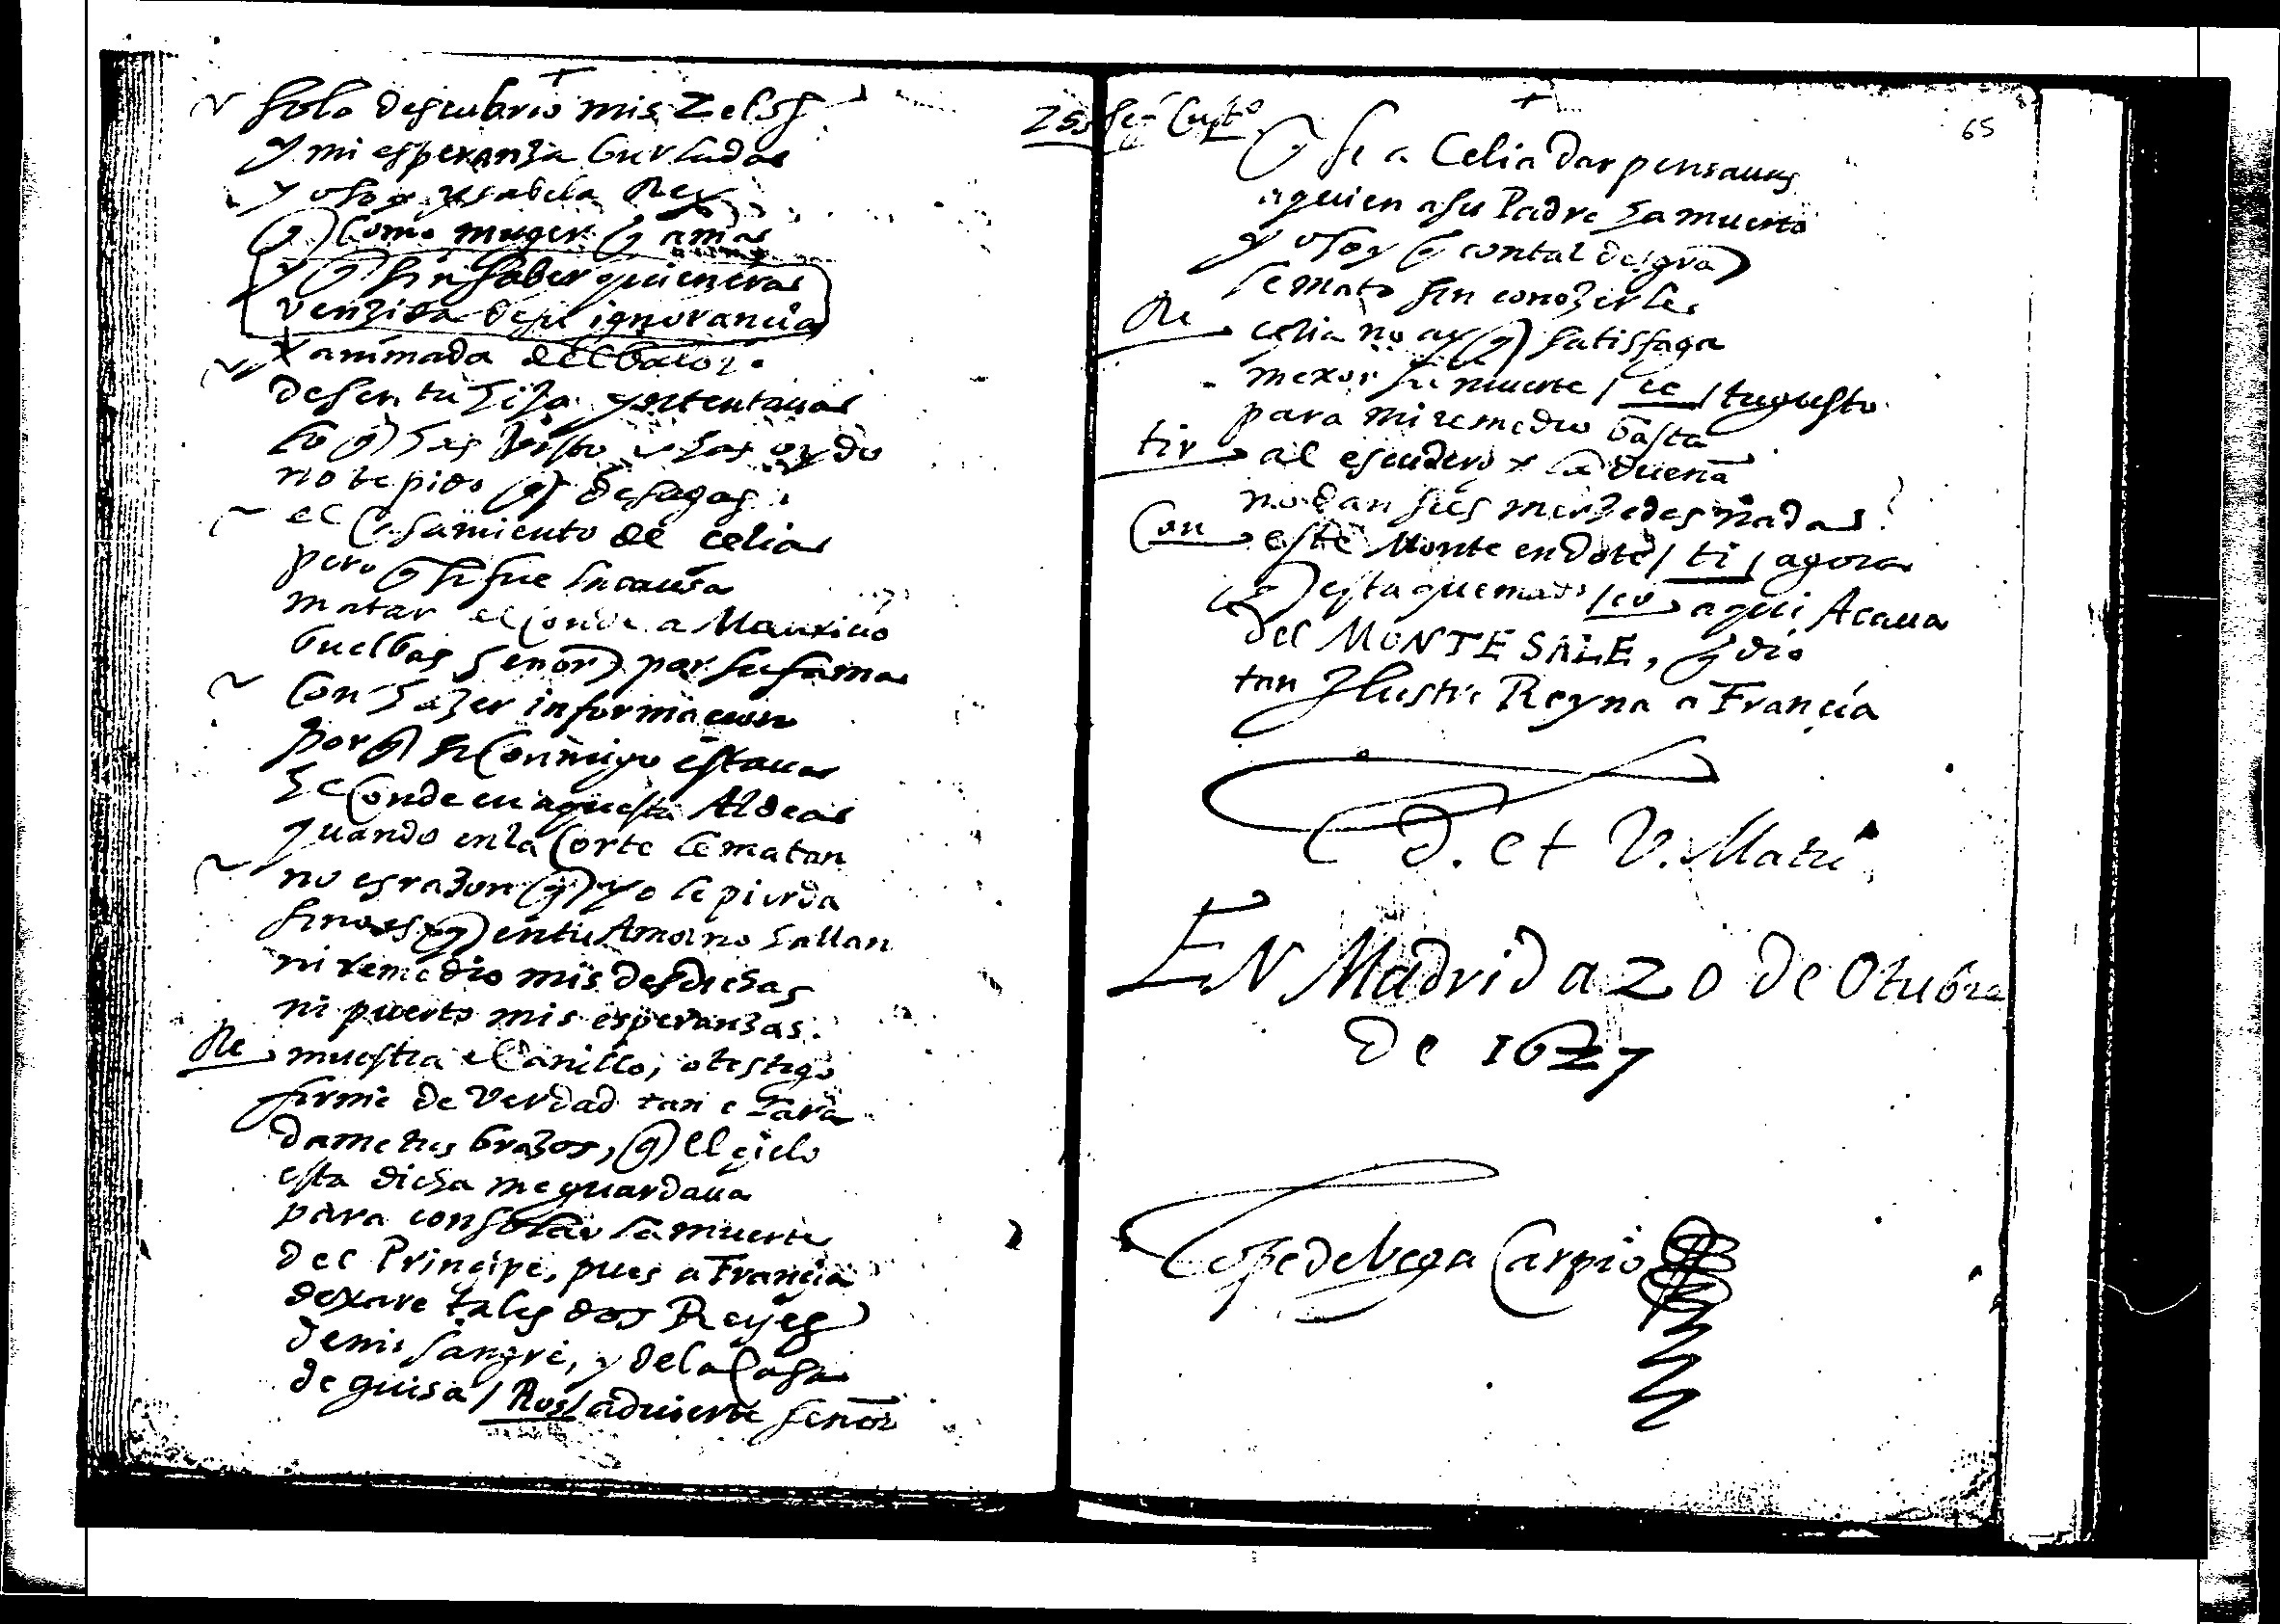 solo descubrio mis zelos
y mi esperanza burladas
y osoy ysabela Rey
q como muger q ama
y q sin saber quien era
venzida de su ignorancia
animada del balor
de ser tu hija yntentaua
lo q has visto y has oydo
no te pido q deshagas
el Casamiento de celia
pero q si fue la causa
matar el Conde a Mauricio
buelbas señor por su fama
Con hazer informacion
por q si Conmigo estaua
el Conde en aquesta Aldea
quando en la Corte le matan
no es razon q yo le pierda
sino es q en tu Amor no hallan
ni remedio mis desdichas
ni puerto mis esperanzas
Re muestra el anillo, o testigo
firme de Verdad tan clara
dame tus brazos, q el cielo
esta dicha me guardaua
para consolar la muerte
del Principe, pues a Francia
dexare tales dos Reyes
de mi sangre, y de la Casa
de guisa / Ros / aduierte señor
65
q se a Celia dar pensauas
a quien a su Padre ha muerto
y osoy q con tal desgra
le mato sin conozerle
Re celia no ay q satisfaga
mexor su muerte / ce / tu gusto
para mi remedio basta
tir al escudero y la dueña
no dan sus merzedes nada?
Con este Monte en dote / ti / agora
q esta quemado / co aqui Acaua
del MONTE SALE, q dio
tan Ilustre Reyna a Francia
EN Madrid a 20 de Otubre
de 1627
Lope de Vega Carpio